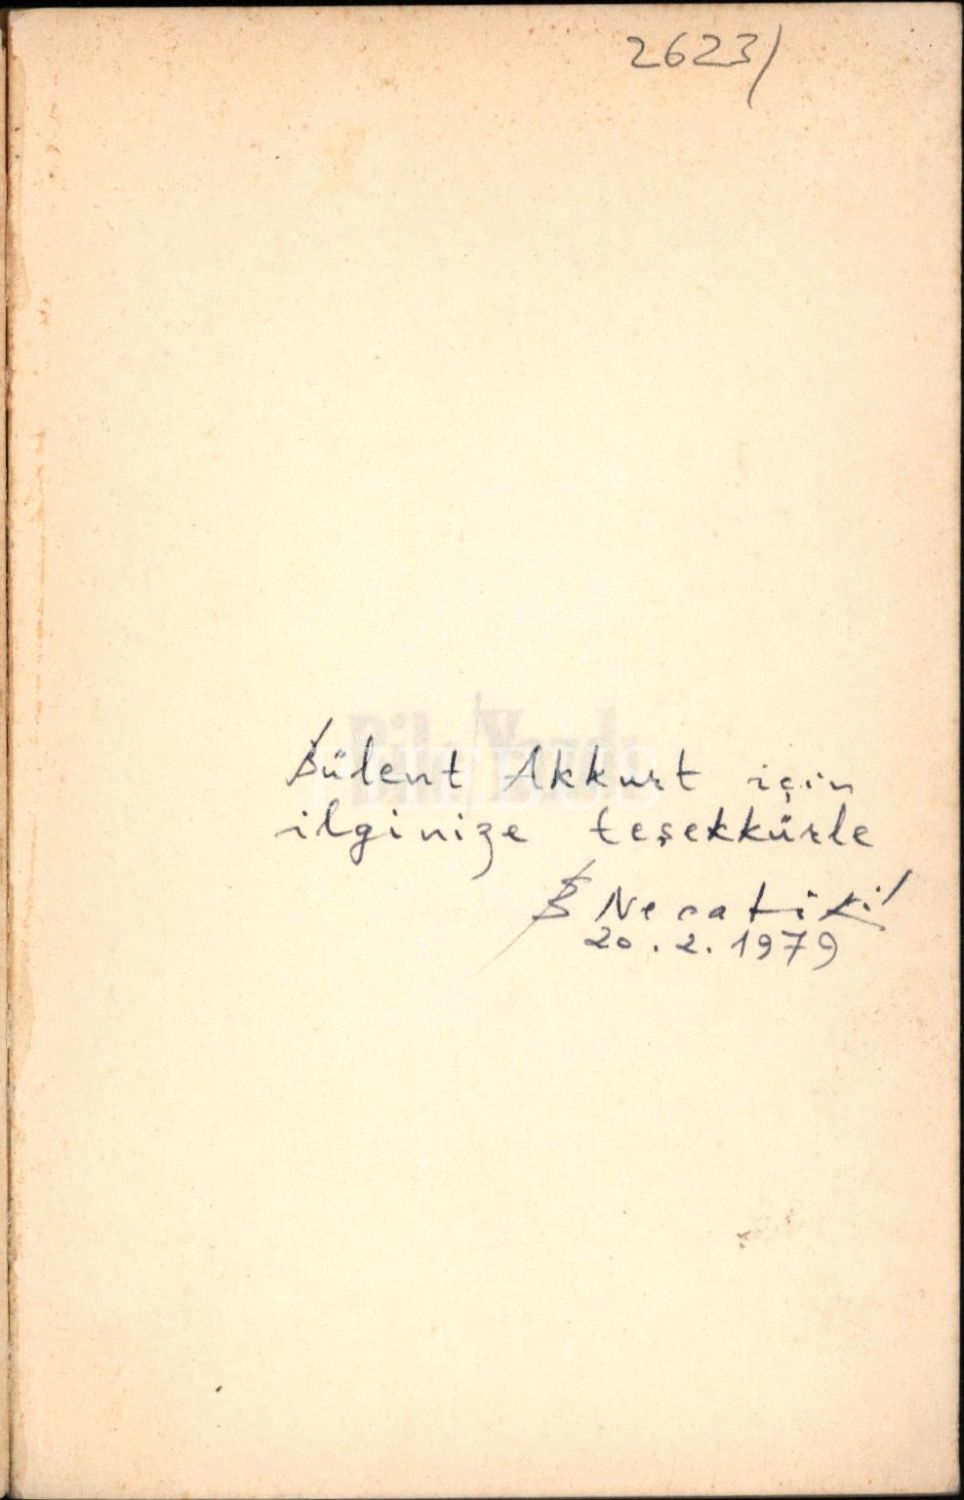 2623/
Bülent Akkurt için
ilginize teşekkürle
B Necatiği
20.2.1979